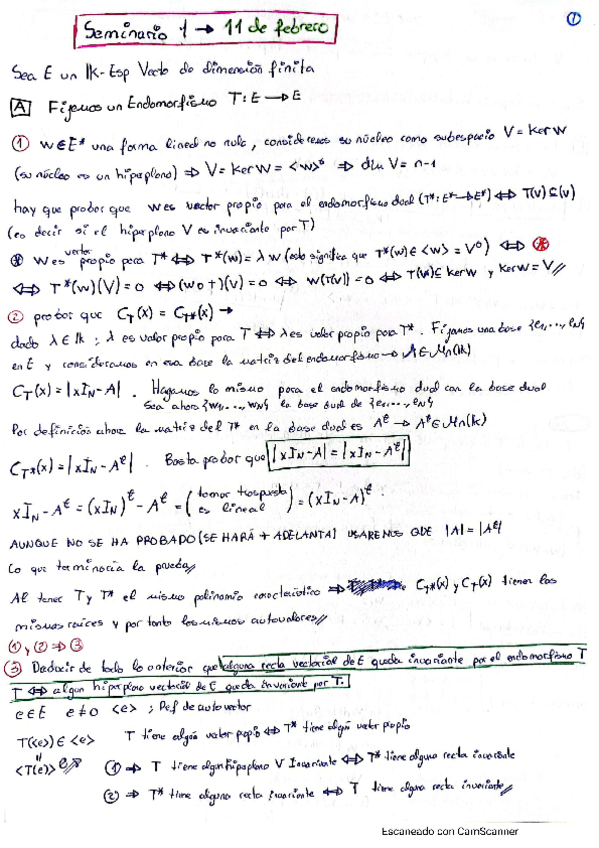 1
Seminario 1 → 11 de febrero
Sea E un lk-Esp Vecto de dimensión finita
A Fijemos un Endomorfismo T: E → E
1 w∈E* una forma lineal no nula, consideremos su núcleo como subespacio V = Ker w
(su núcleo es un hiperplano) ⇒ V = Ker w = <w>° ⇒ dim V = n-1
hay que probar que w es vector propio para el endomorfismo dual (T*: E* → E*) ⇔ T(V) ⊆ (V)
(es decir si el hiperplano V es invariante por T)
* w es vector propio para T* ⇔ T*(w) = λw (esto significa que T*(w) ∈ <w> = V°) ⇔ *
⇔ T*(w)(V) = 0 ⇔ (w∘T)(V) = 0 ⇔ w(T(V)) = 0 ⇔ T(V) ⊆ Ker w y Ker w = V //
2 probar que C_T(x) = C_T*(x) →
dado λ∈lk ; λ es valor propio para T ⇔ λ es valor propio para T*. Fijamos una base {e1,..., eN}
en E y consideramos en esa base la matriz del endomorfismo → A∈Mn(lk)
C_T(x) = |xI_N - A| . Hagamos lo mismo para el endomorfismo dual con la base dual
Sea ahora {w1,..., wN} la base dual de {e1,..., eN}
Por definición ahora la matriz del T* en la base dual es A^t → A^t ∈ Mn(k)
C_T*(x) = |xI_N - A^t| . Basta probar que |xI_N - A| = |xI_N - A^t|
xI_N - A^t = (xI_N)^t - A^t = (tomar traspuesta es lineal) = (xI_N - A)^t .
AUNQUE NO SE HA PROBADO (SE HARÁ + ADELANTE) USAREMOS QUE |A| = |A^t|
Lo que terminaría la prueba //
Al tener T y T* el mismo polinomio característico ⇒ C_T*(x) y C_T(x) tienen las
mismas raíces y por tanto los mismos autovalores //
1 y 2 ⇒ 3
3 Deducir de todo lo anterior que alguna recta vectorial de E queda invariante por el endomorfismo T
T ⇔ algún hiperplano vectorial de E queda invariante por T.
e∈E e≠0 <e> ; Def de autovector
T(<e>) ∈ <e> T tiene algún vector propio ⇔ T* tiene algún vector propio
<T(e)> 1 ⇒ T tiene algún hiperplano V Invariante ⇔ T* tiene alguna recta invariante
2 ⇒ T* tiene alguna recta invariante ⇔ T tiene alguna recta invariante //
Escaneado con CamScanner